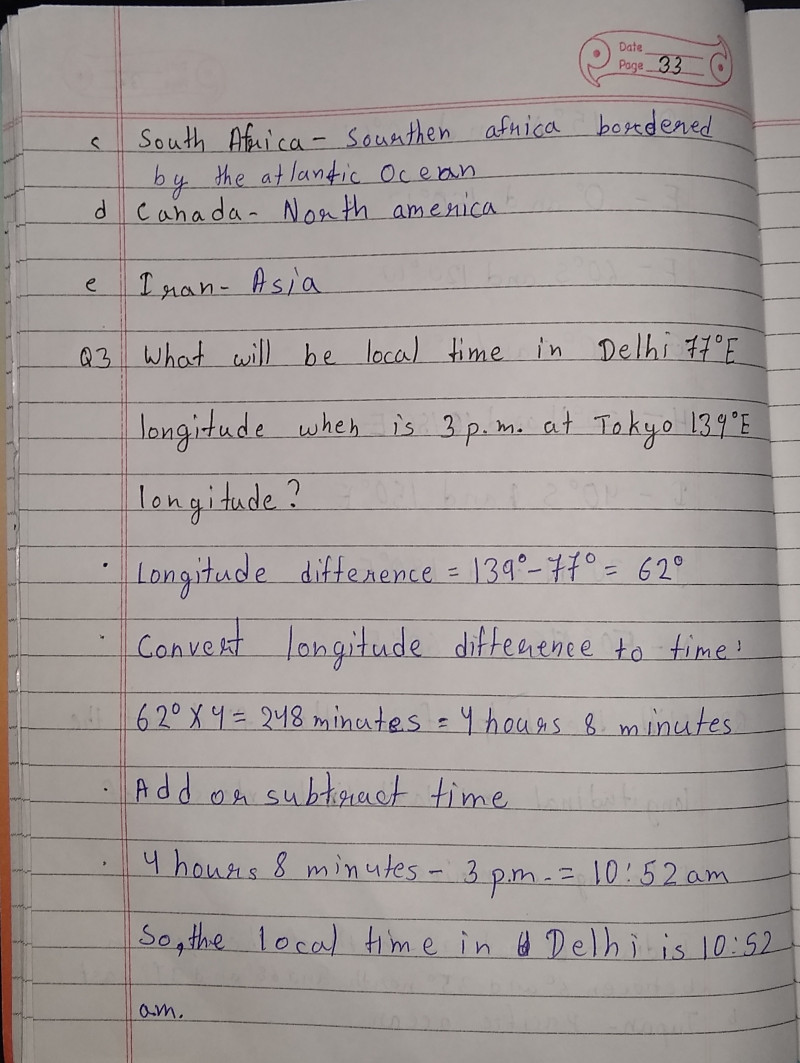 Date
Page 33
c South Africa - Sounthen africa bordered
by the atlantic Ocean
d Canada - North america
e Iran - Asia
Q3 What will be local time in Delhi 77°E
longitude when is 3 p.m. at Tokyo 139°E
longitude?
• Longitude difference = 139° - 77° = 62°
• Convert longitude difference to time:
62° X 4 = 248 minutes = 4 hours 8 minutes
• Add or subtract time
• 4 hours 8 minutes - 3 p.m. = 10:52 am
So, the local time in Delhi is 10:52
am.